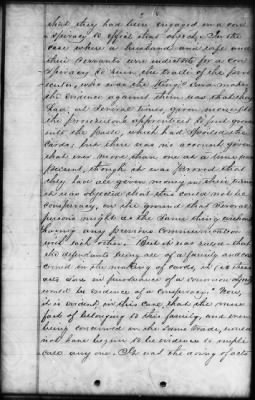 that they had been engaged in a con
spiracy to effect that object. In the
case where a husband and wife and
their servants were indicted for a con
spiracy to ruin the trade of the prose
cutor, who was the King's card maker,
the evidence against them was that they
had, at several times, given money to
the prosecutor's apprentices to put grease
into the paste, which had spoiled the
cards, but there was no account given
that ever more than one at a time was
present, though it was proved that
they had all given money in their turns
it was objected that this could not be
conspiracy, on the ground that several
persons might do the same thing without
having any previous communication
with each other. But it was ruled that
the defendants being all of a family and con
cerned in the making of cards, it
would be evidence of a conspiracy. Now,
it is evident, in this case, that the mere
fact of belonging to this family, and even
being concerned in the same trade, would
not have begun to be evidence to impli
cate any one. It was the doing of acts